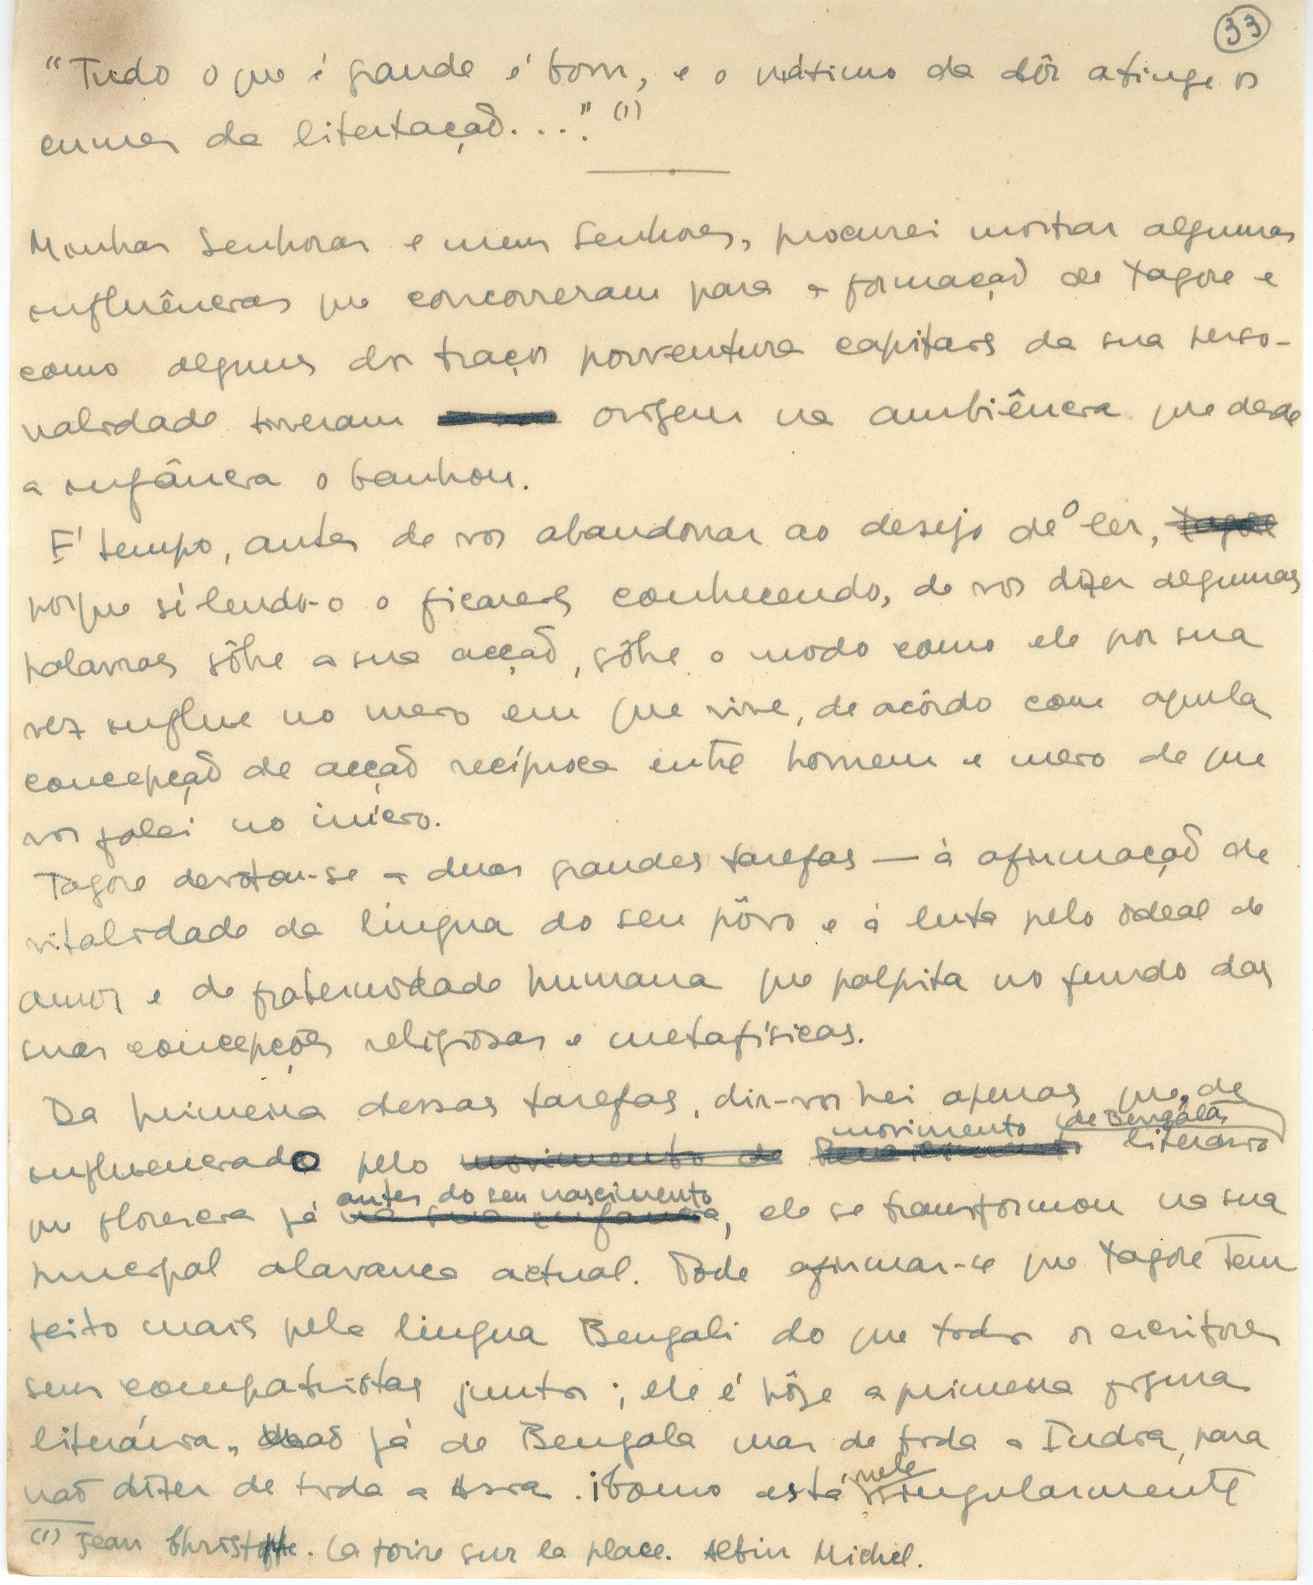 33
"Tudo o que é grande é bom, e o máximo da dôr atinge os
cumes da libertação...." (1)
Minhas Senhoras e meus Senhores, procurei mostrar algumas
influências que concorreram para a formação de Tagore e
como alguns dos traços porventura capitais da sua perso-
nalidade tiveram origem na ambiência que desde
a infância o banhou.
E' tempo, antes de vos abandonar ao desejo de o ler,
porque só lendo-o o ficareis conhecendo, de vos dizer algumas
palavras sôbre a sua acção, sôbre o modo como ele por sua
vez influe no meio em que vive, de acôrdo com aquela
concepção de acção recíproca entre homem e meio de que
vos falei no início.
Tagore devotou-se a duas grandes tarefas — à afirmação de
vitalidade da língua do seu pôvo e à luta pelo ideal de
amor e de fraternidade humana que palpita no fundo das
suas concepções religiosas e metafísicas.
Da primeira dessas tarefas, dir-vos hei apenas que, de
influenciado pelo movimento literário de Bengala,
que florescia já antes do seu nascimento, ele se transformou na sua
principal alavanca actual. Pode afirmar-se que Tagore tem
feito mais pela língua Bengali do que todos os escritores
seus compatriotas juntos; ele é hôje a primeira figura
literária, não já de Bengala mas de toda a India, para
não dizer de toda a Asia. Como está nele singularmente
(1) Jean Christophe. La foire sur la place. Albin Michel.